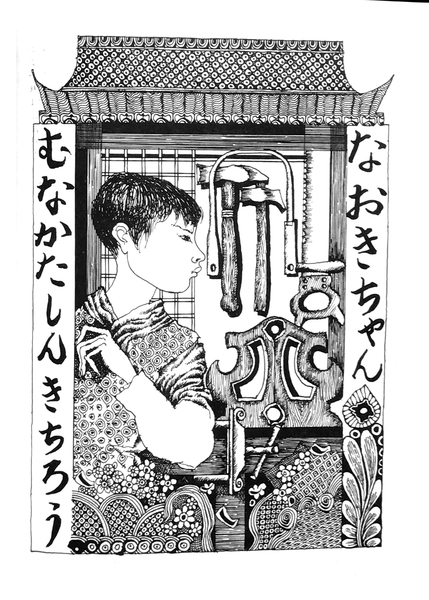 なおきちゃん
むなかたしんきちろう